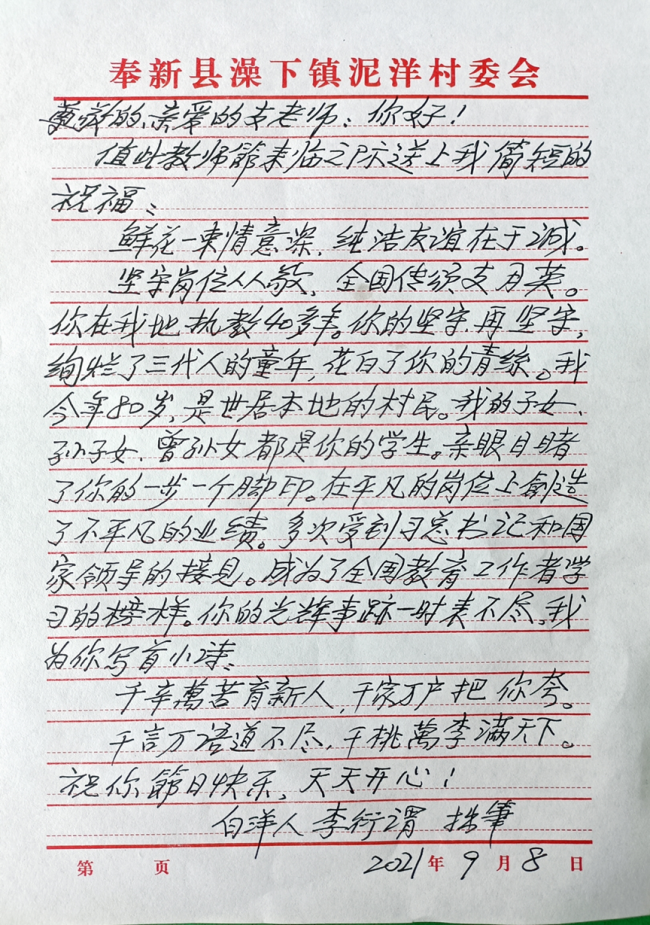 奉新县澡下镇泥洋村委会
尊敬的、亲爱的支老师：你好！
值此教师節来临之际送上我简短的
祝福：
鲜花一束情意深，纯洁友谊在于诚。
坚守岗位人人敬，全国传颂支月英。
你在我地执教40多年。你的坚守，再坚守，
绚烂了三代人的童年，花白了你的青丝。我
今年80岁，是世居本地的村民。我的子女、
孙子女、曾孙女都是你的学生。亲眼目睹
了你的一步一个脚印。在平凡的岗位上创造
了不平凡的业绩。多次受到习总书记和国
家领导的接見。成为了全国教育工作者学
习的榜样。你的光辉事跡一时表不尽，我
为你写首小诗：
千辛萬苦育新人，千家万户把你夸。
千言万语道不尽，千桃萬李满天下。
祝你節日快乐，天天开心！
白洋人 李行谓 拙筆
第 页 2021年9月8日